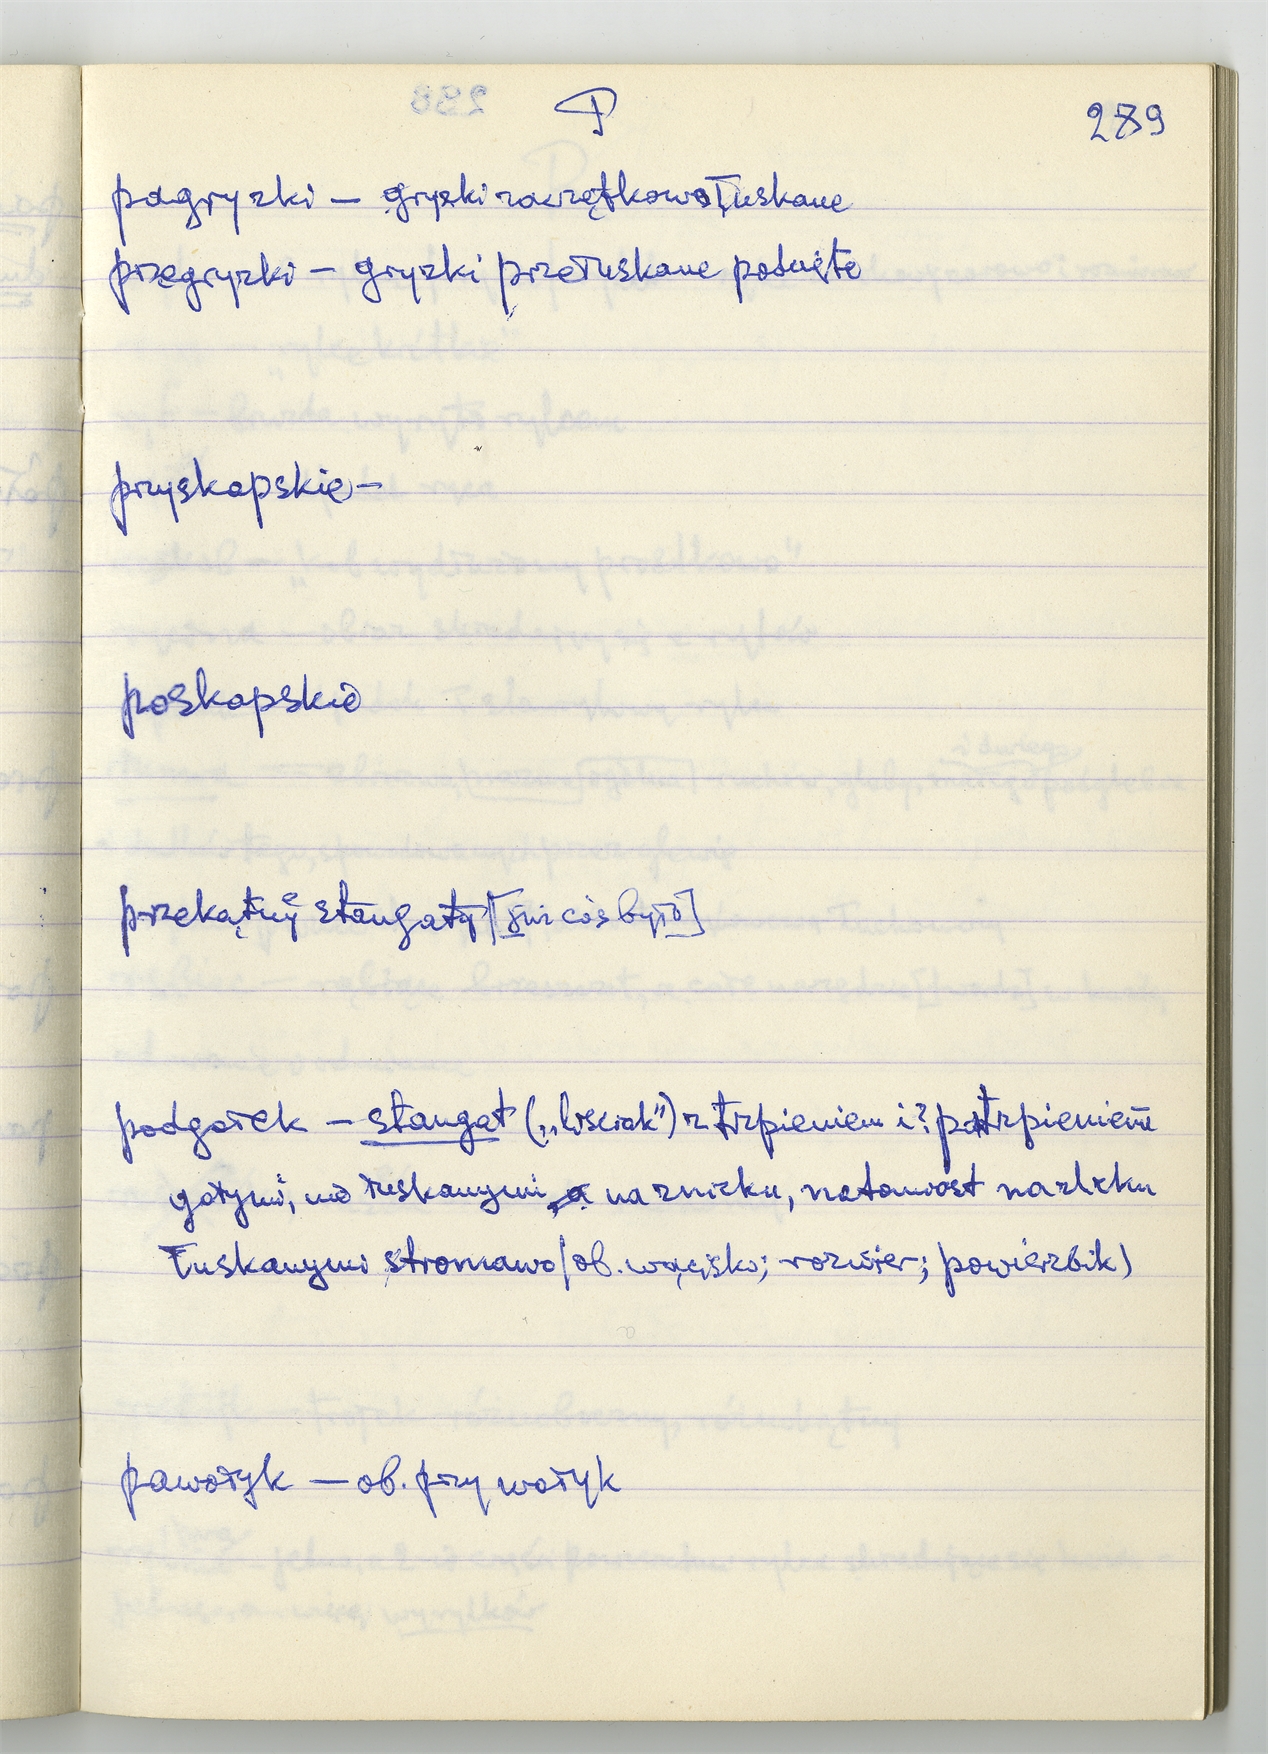 P 289
pagryzki — gryzki zawrzętkowo łuskane
przegryzki — gryzki przełuskane
przyskapskie —
poskapskie
przekątny stangaty [już coś było]
podgołek — stangat („liściak") z trzpieniem i? patrzpieniem
gołymi, nie łuskanymi na zniczku, natomiast na zliczku
łuskanymi stromawo (ob. wącisko; rozwier; powierzbik)
pawołyk — ob. przywołyk